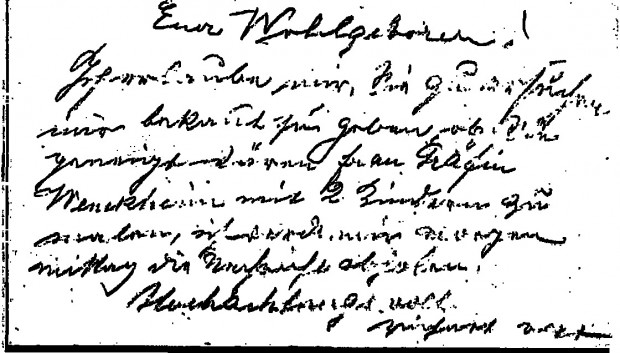 Euer Wohlgeboren!
Ich erlaube mir, Sie zu ersuchen
mir bekant zu geben, ob Sie
geneigt wären frau Gräfin
Wenckheim mit 2 Kindern zu
malen, ich werde mir morgen
mittag die Nachricht abholen.
Hochachtungsvoll